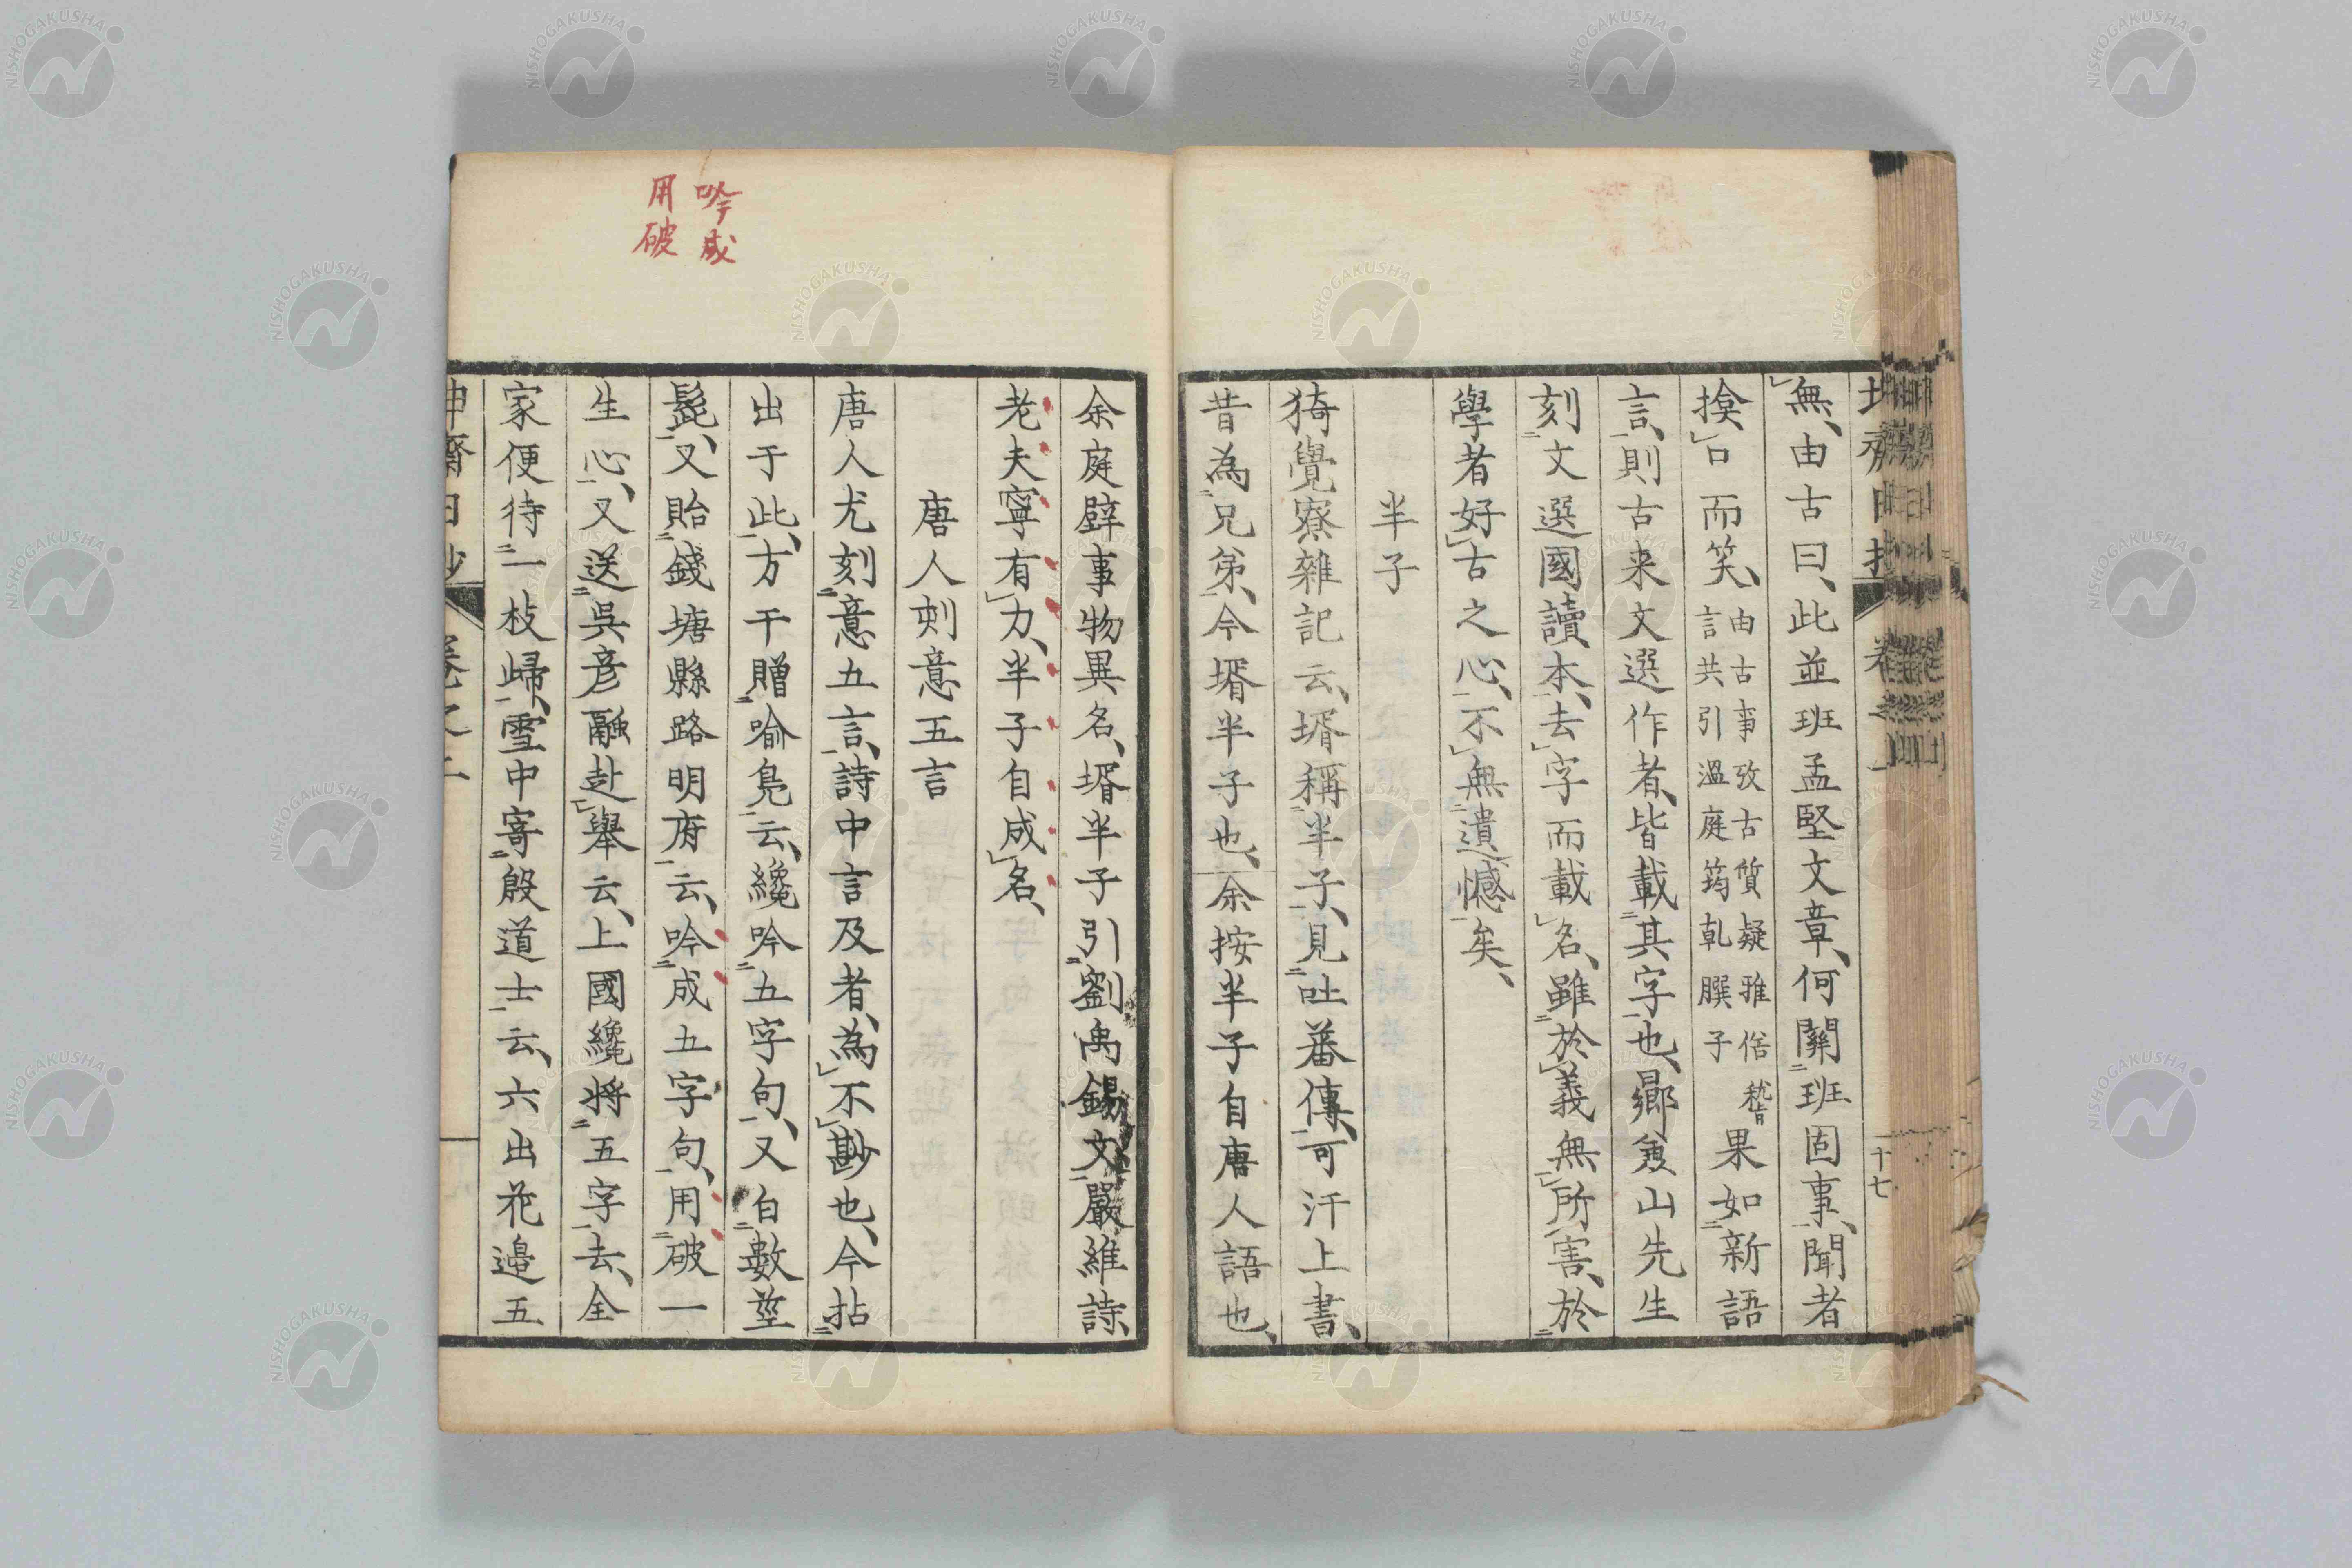 無、由古曰、此並班孟堅文章、何關班固事、聞者
掩口而笑、由古事攷古質疑雅俗稽言共引溫庭筠乹𦠆子果如新語
言、則古来文選作者、皆載其字也、鄉兊山先生
刻文選國讀本、去字而載名、雖於義無所害、於
學者好古之心、不無遺憾矣、
半子
猗覺寮雜記云、壻稱半子、見吐蕃傳、可汗上書、
昔為兄弟、今壻半子也、余按半子自唐人語也、
十七
余庭辟事物異名、壻半子引劉禹錫文、嚴維詩、
老夫寧有力、半子自成名、
唐人刻意五言
唐人尤刻意五言、詩中言及者、為不尠也、今拈
出于此、方干贈喻鳧云、纔吟五字句、又白數莖
髭、又貽錢塘縣路明府云、吟成五字句、用破一
生心、又送吳彦融赴舉云、上國纔將五字去、全
家便待一枝歸、雪中寄殷道士云、六出花邉五
吟成
用破
NISHOGAKUSHA